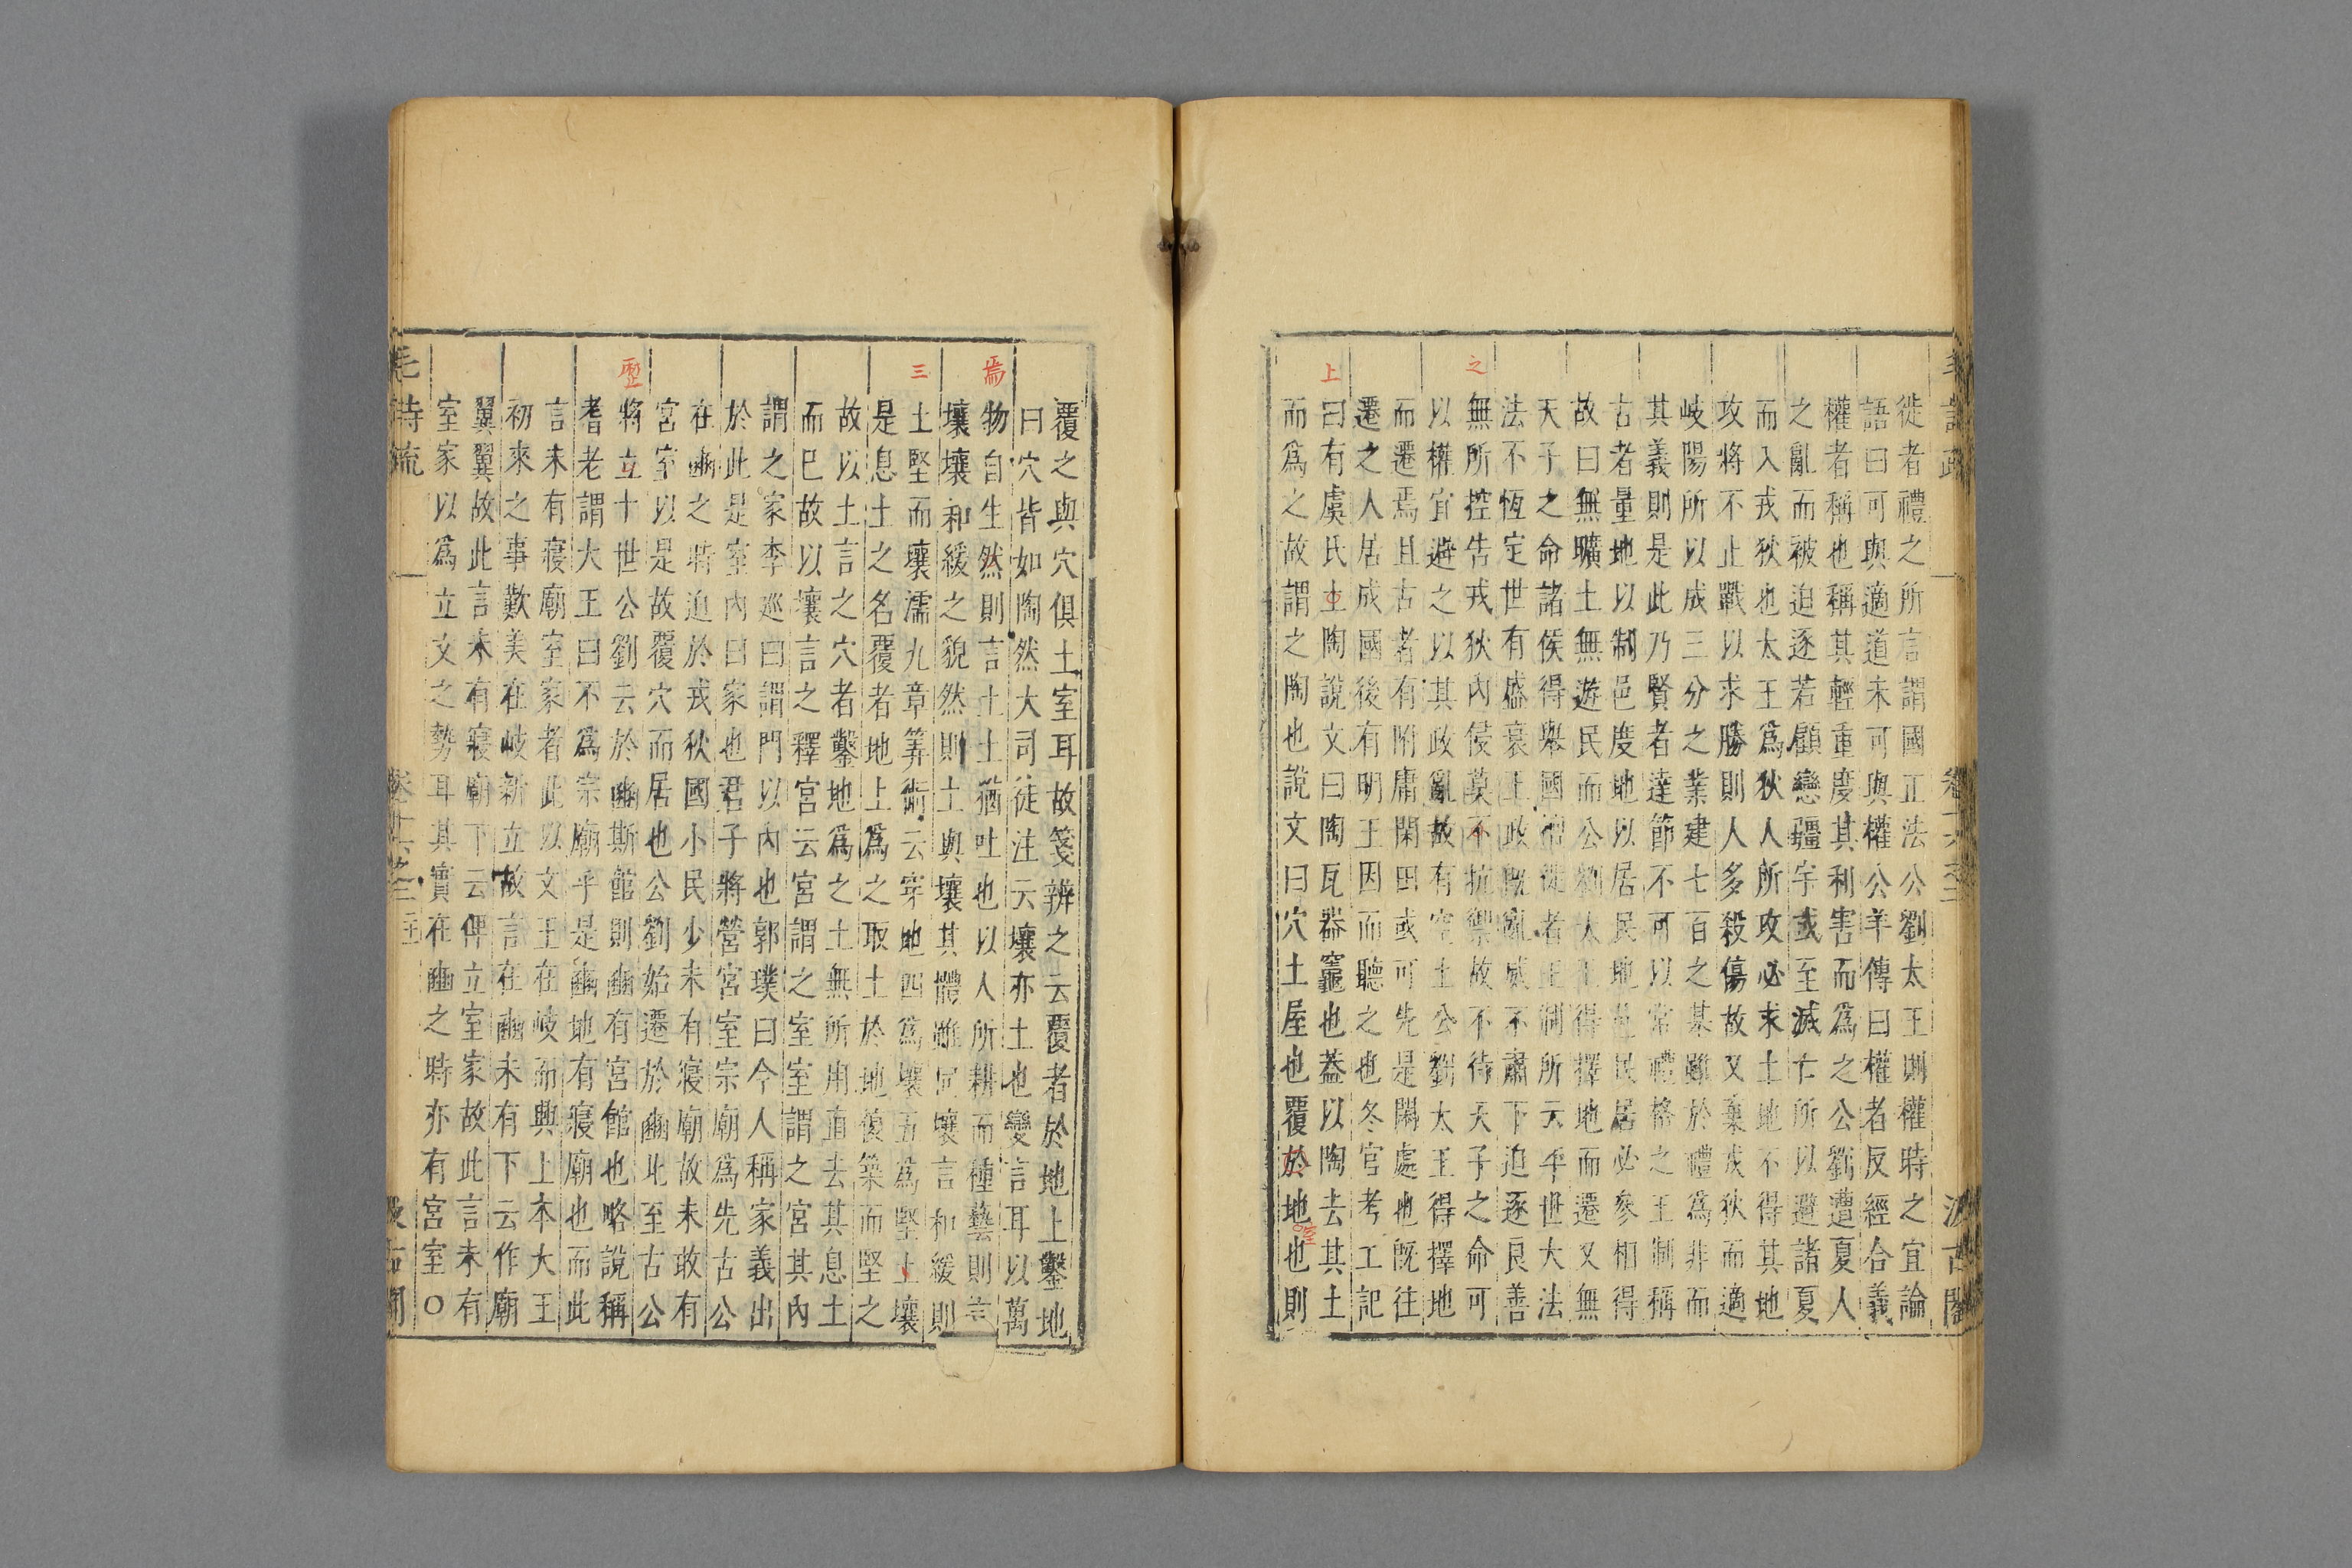 毛詩疏 卷十六之二 汲古閣
徙者禮之所言謂國正法公劉太王則權時之宜論
語曰可與適道未可與權公羊傳曰權者反經合義
權者稱也稱其輕重度其利害而爲之公劉遭夏人
之亂而被迫逐若顧戀疆宇或至滅亡所以避諸夏
而入戎狄也太王爲狄人所攻必求土地不得其地
攻將不止戰以求勝則人多殺傷故又棄戎狄而適
岐陽所以成三分之業建七百之基雖於禮爲非而
其義則是此乃賢者達節不可以常禮格之王制稱
古者量地以制邑度地以居民地邑民居必參相得
故曰無曠土無遊民而公劉大王得擇地而遷又無
天子之命諸侯得舉國徙者王制所云平世大法
法不恆定世有盛衰王政既亂威不肅下迫逐良善
之
無所控告戎狄內侵莫不抗禦故不待天子之命可
以權宜避之以其政亂故有空土公劉太王得擇地
而遷焉且古者有附庸閑田或可先是閑處也既往
遷之人居成國後有明王因而聽之也冬官考工記
上
曰有虞氏土陶說文曰陶瓦器竈也蓋以陶去其土
而爲之故謂之陶也說文曰穴土屋也覆於地也則
室
覆之與穴俱土室耳故箋辨之云覆者於地上鑿地
曰穴皆如陶然大司徒注云壤亦土也變言耳以萬
焉
物自生然則言土土猶吐也以人所耕而種藝則言
壤壤和緩之貌然則土與壤其體雖同壤言和緩則
三
土堅而壤濡九章筭術云穿地四爲壤五爲堅土壤
是息土之名覆者地上爲之取土於地復築而堅之
故以土言之穴者鑿地爲之土無所用直去其息土
而巳故以壤言之釋宮云宮謂之室室謂之宮其內
謂之家李巡曰謂門以內也郭璞曰今人稱家義出
於此是室內曰家也君子將營宮室宗廟爲先古公
在豳之時迫於戎狄國小民少未有寢廟故未敢有
宮室以是故覆穴而居也公劉始遷於豳比至古公
歷
將立十世公劉云於豳斯館則豳有宮館也略說稱
耆老謂大王曰不爲宗廟乎是豳地有寢廟也而此
言未有寢廟室家者此以文王在岐而興上本大王
初來之事歎美在岐新立故言在豳未有下云作廟
翼翼故此言未有寢廟下云俾立室家故此言未有
室家以爲立文之勢耳其實在豳之時亦有宮室〇
毛詩疏 卷十六之二 汲古閣